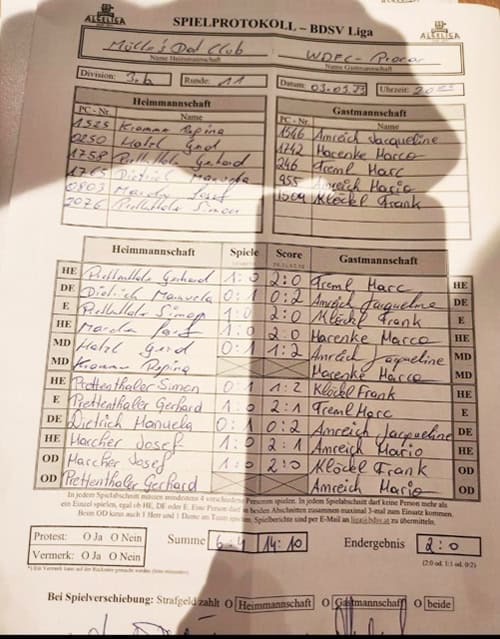 SPIELPROTOKOLL – BDSV Liga
Name Heimmannschaft
Name Gastmannschaft
Division: 3.b Runde: 11 Datum: 03.03.23 Uhrzeit:
Heimmannschaft Gastmannschaft
PC - Nr. Name PC - Nr. Name
1525 1546 Amreich Jacqueline
0250 Hotzl Gerd 1742 Harenke Marco
1758 Prettenthaler Gerhard 246 Treml Marc
1765 Dietrich Manuela 955 Amreich Mario
0803 1509 Klöckl Frank
2076 Prettenthaler Simon
Heimmannschaft Spiele Score Gastmannschaft
HE Prettenthaler Gerhard 1:0 2:0 Treml Marc HE
DE Dietrich Manuela 0:1 0:2 Amreich Jacqueline DE
E Prettenthaler Simon 1:0 2:0 Klöckl Frank E
HE 1:0 2:0 Harenke Marco HE
MD Hotzl Gerd 0:1 1:2 Amreich Jacqueline MD
MD Harenke Marco MD
HE Prettenthaler Simon 0:1 1:2 Klöckl Frank HE
E Prettenthaler Gerhard 1:0 2:1 Treml Marc E
DE Dietrich Manuela 0:1 0:2 Amreich Jacqueline DE
HE Marcher Josef 1:0 2:1 Amreich Mario HE
OD Marcher Josef 1:0 2:0 Klöckl Frank OD
OD Prettenthaler Gerhard Amreich Mario OD
In jedem Spielabschnitt müssen mindestens 4 verschiedene Personen spielen. In jedem Spielabschnitt darf keine Person mehr als
ein Einzel spielen, egal ob HE, DE oder E. Eine Person darf in beiden Abschnitten zusammen maximal 3-mal zum Einsatz kommen.
Beim OD kann auch 1 Herr und 1 Dame am Team spielen. Spielberichte sind per E-Mail an liga@bdsv.at zu übermitteln.
Protest: O Ja O Nein Summe 6:4 14:10 Endergebnis 2:0
Vermerk: O Ja O Nein (2:0 od. 1:1 od. 0:2)
Bei Spielverschiebung: Strafgeld zahlt O Heimmannschaft O Gastmannschaft O beide